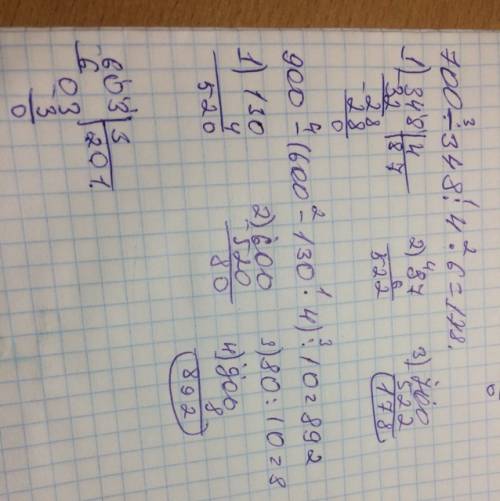 700 - 348 : 4 · 6 = 178.
3 1 2
1) 348 | 4   2) 87   3) 700
32 | 87   4   522
- 28   6   178
28   522
0
900 - (600 - 130 · 4) : 10 = 892
4 2 1 3
1) 130   2) 600   3) 80 : 10 = 8
4   520   4) 900
520   80   8
892
603 | 3
6 | 201.
03
3
0